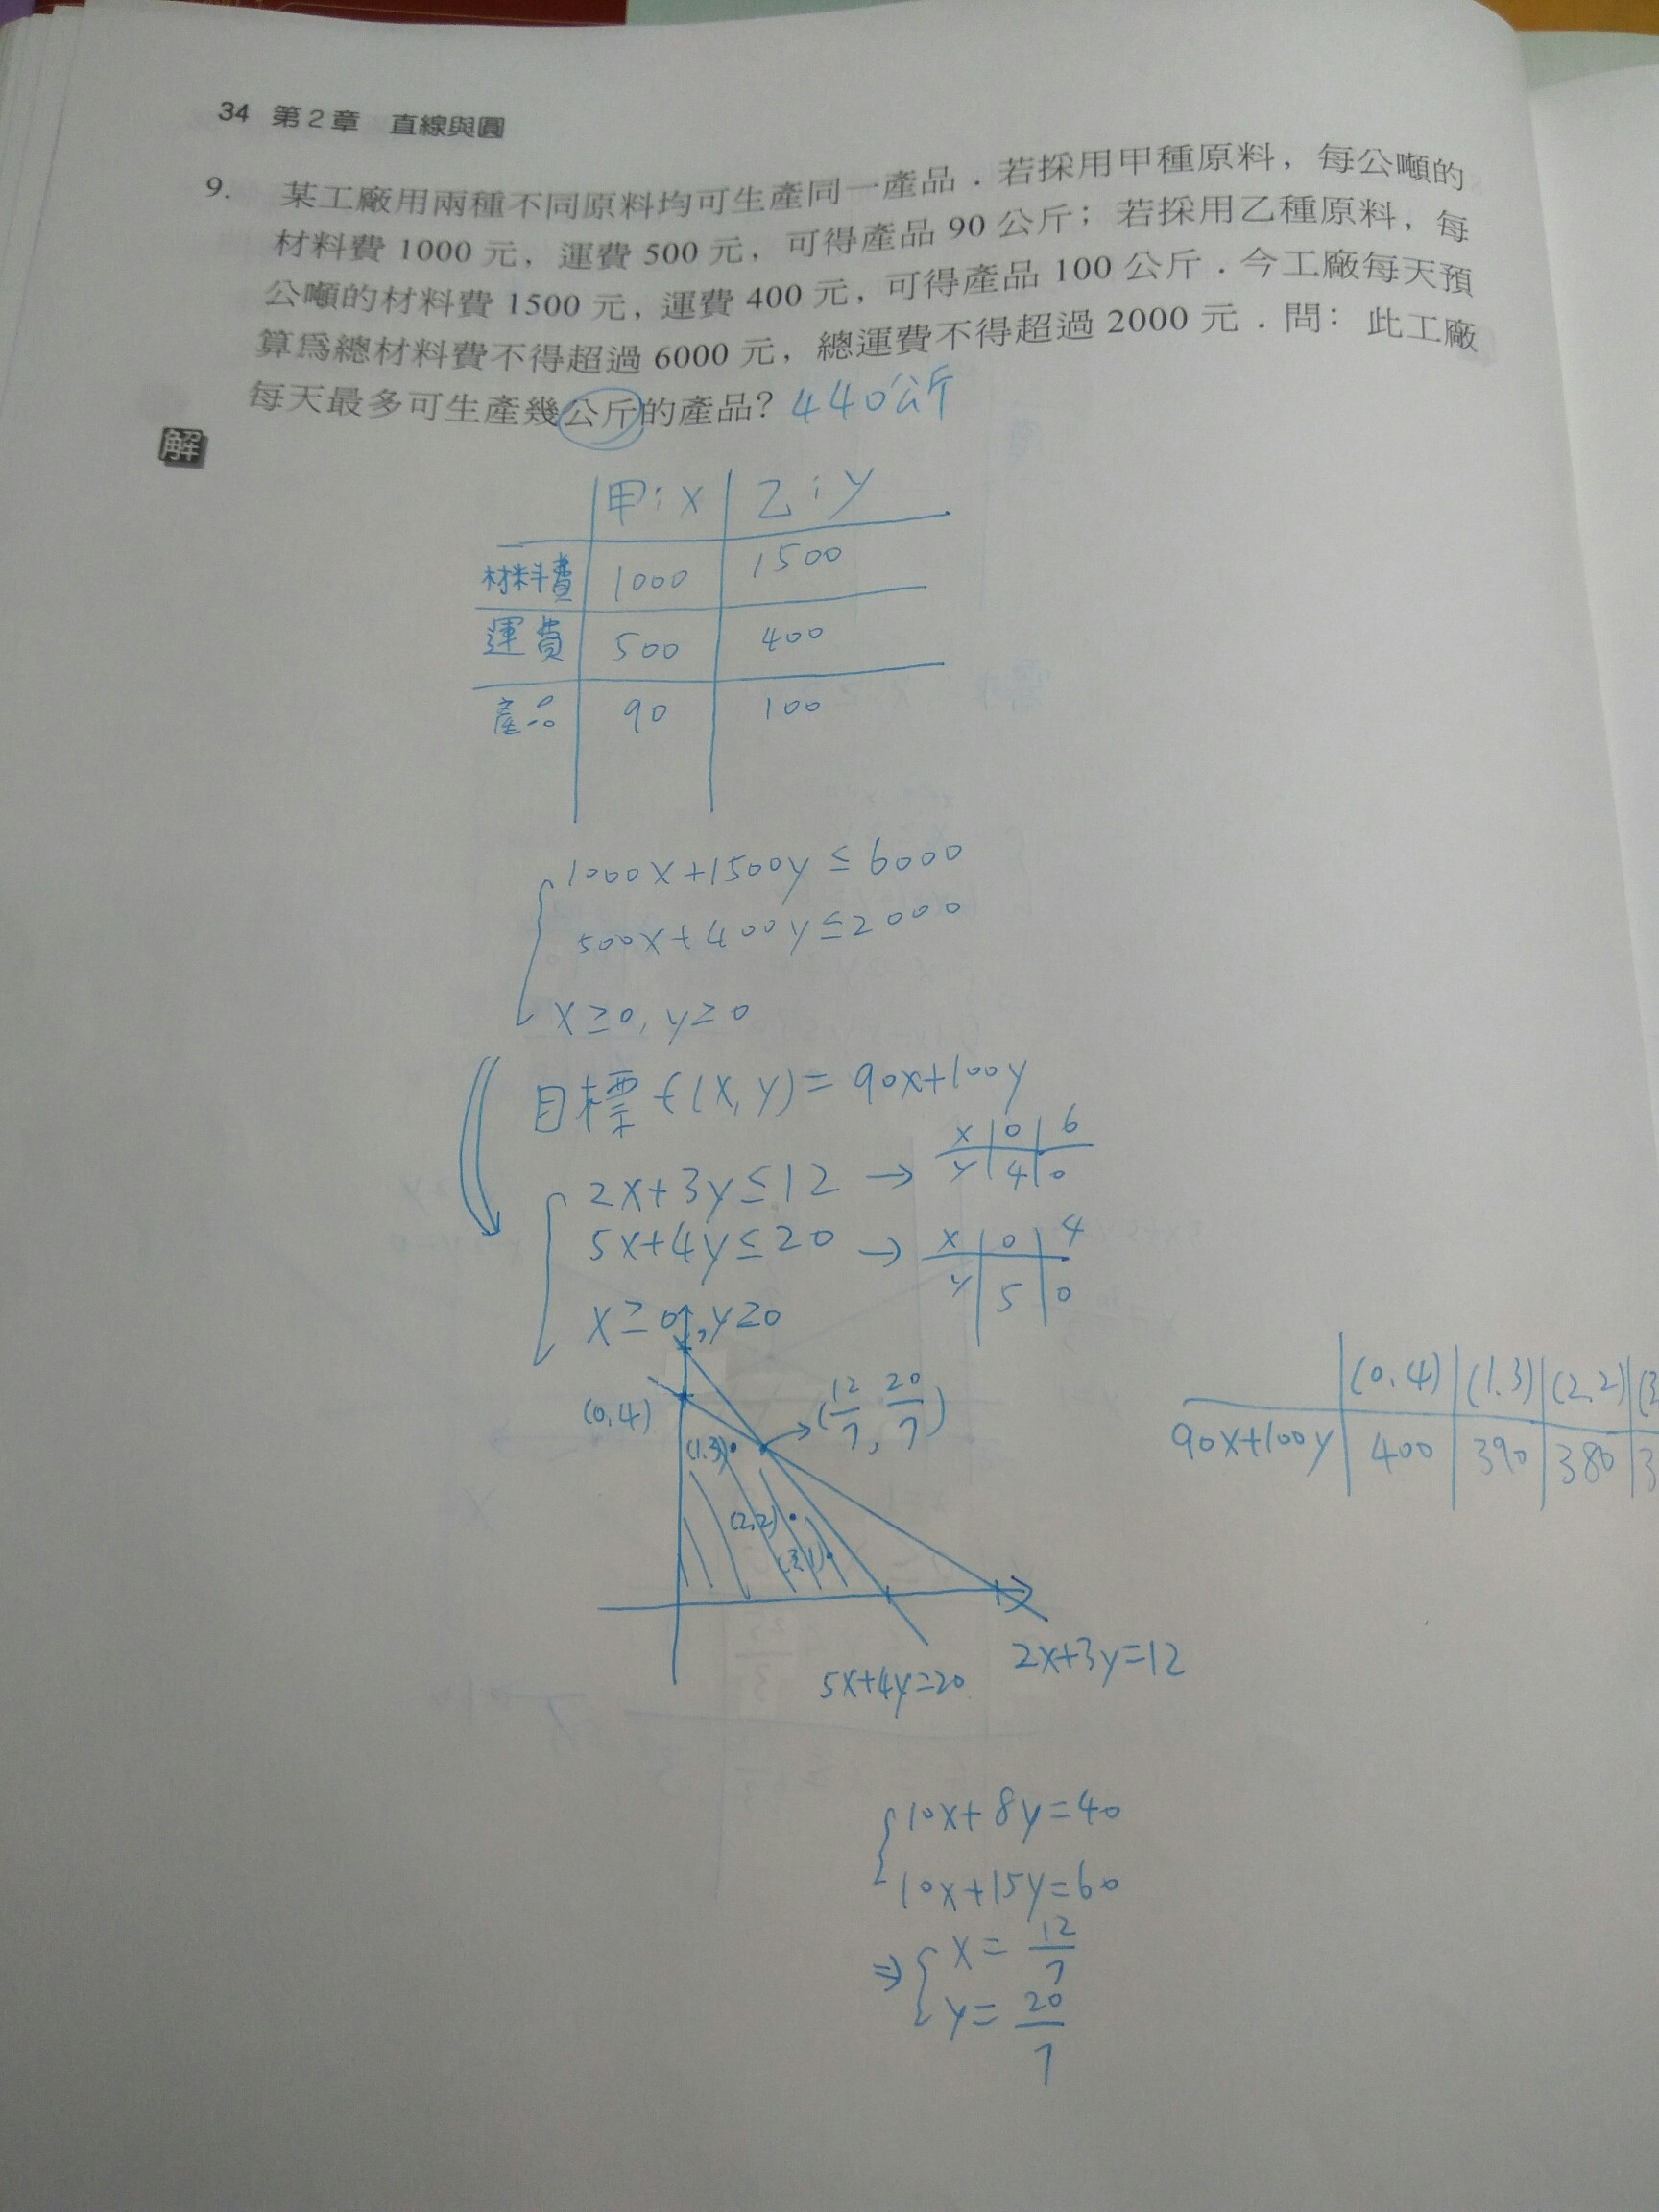 34 第2章 直線與圓
9. 某工廠用兩種不同原料均可生產同一產品．若採用甲種原料，每公噸的
材料費 1000 元，運費 500 元，可得產品 90 公斤；若採用乙種原料，每
公噸的材料費 1500 元，運費 400 元，可得產品 100 公斤．今工廠每天預
算為總材料費不得超過 6000 元，總運費不得超過 2000 元．問：此工廠
每天最多可生產幾公斤的產品？ 440公斤
解
甲:x 乙:y
材料費 1000 1500
運費 500 400
產品 90 100
1000x+1500y≤6000
500x+400y≤2000
x≥0, y≥0
目標 f(x,y)=90x+100y
2x+3y≤12 → x 0 6
y 4 0
5x+4y≤20 → x 0 4
y 5 0
x≥0, y≥0
(0,4) (12/7, 20/7)
(1,3)
(2,2)
(3,1)
(0,4) (1,3) (2,2) (3
90x+100y 400 390 380 3
5x+4y=20 2x+3y=12
10x+8y=40
10x+15y=60
⇒ x=12/7
y=20/7